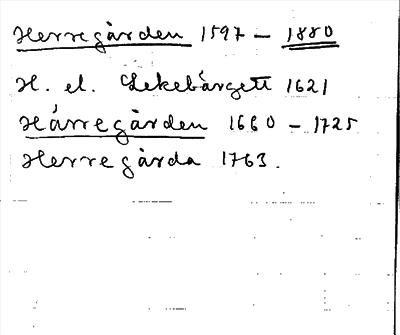 Herregården 1597 - 1880
H. el. Lekebärgett 1621
Härregården 1660 - 1725
Herregårda 1763.